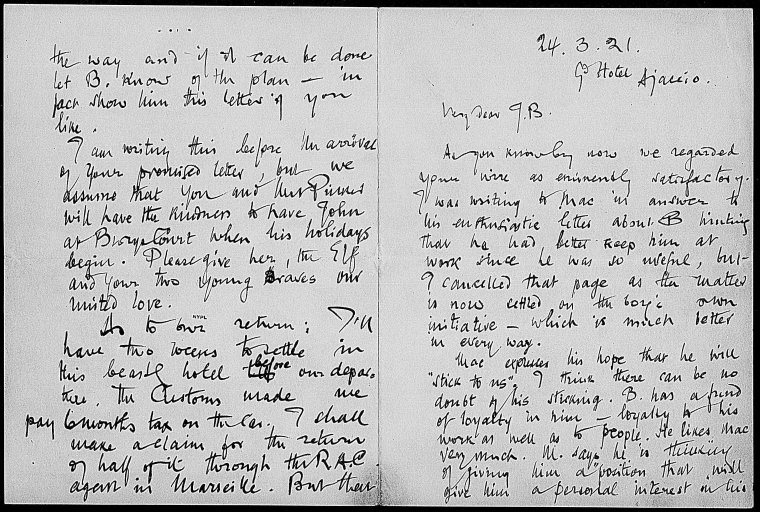 the way and if it can be done
let B. know of the plan – in
fact show him this letter if you
like.
I am writing this before the arrival
of your promised letter, but we
assume that you and Mrs Pinker
will have the kindness to have John
at Burys Court when his holidays
begin. Please give her, the Elf
and your two young braves our
united love.
As to our return: I'll
have two weeks to settle in
this beastly hotel before our depar-
ture. The Customs made me
pay 6 months tax on the car. I shall
make a claim for the return
of half of it through the R.A.C
agent in Marseille. But then
24.3.21.
Gd Hotel Ajaccio.
Very dear J.B.
As you know by now we regarded
your wire as eminently satisfactory.
I was writing to Mac in answer to
his enthusiastic letter about B hinting
that he had better keep him at
work since he was so useful, but
I cancelled that page as the matter
is now settled on the boy's own
initiative – which is much better
in every way.
Mac expresses his hope that he will
"stick to us". I think there can be no
doubt of his sticking. B. has a fund
of loyalty in him – loyalty to his
work as well as to people. He likes Mac
very much. M. says he is thinking
of giving him a "position that will
give him a personal interest in his